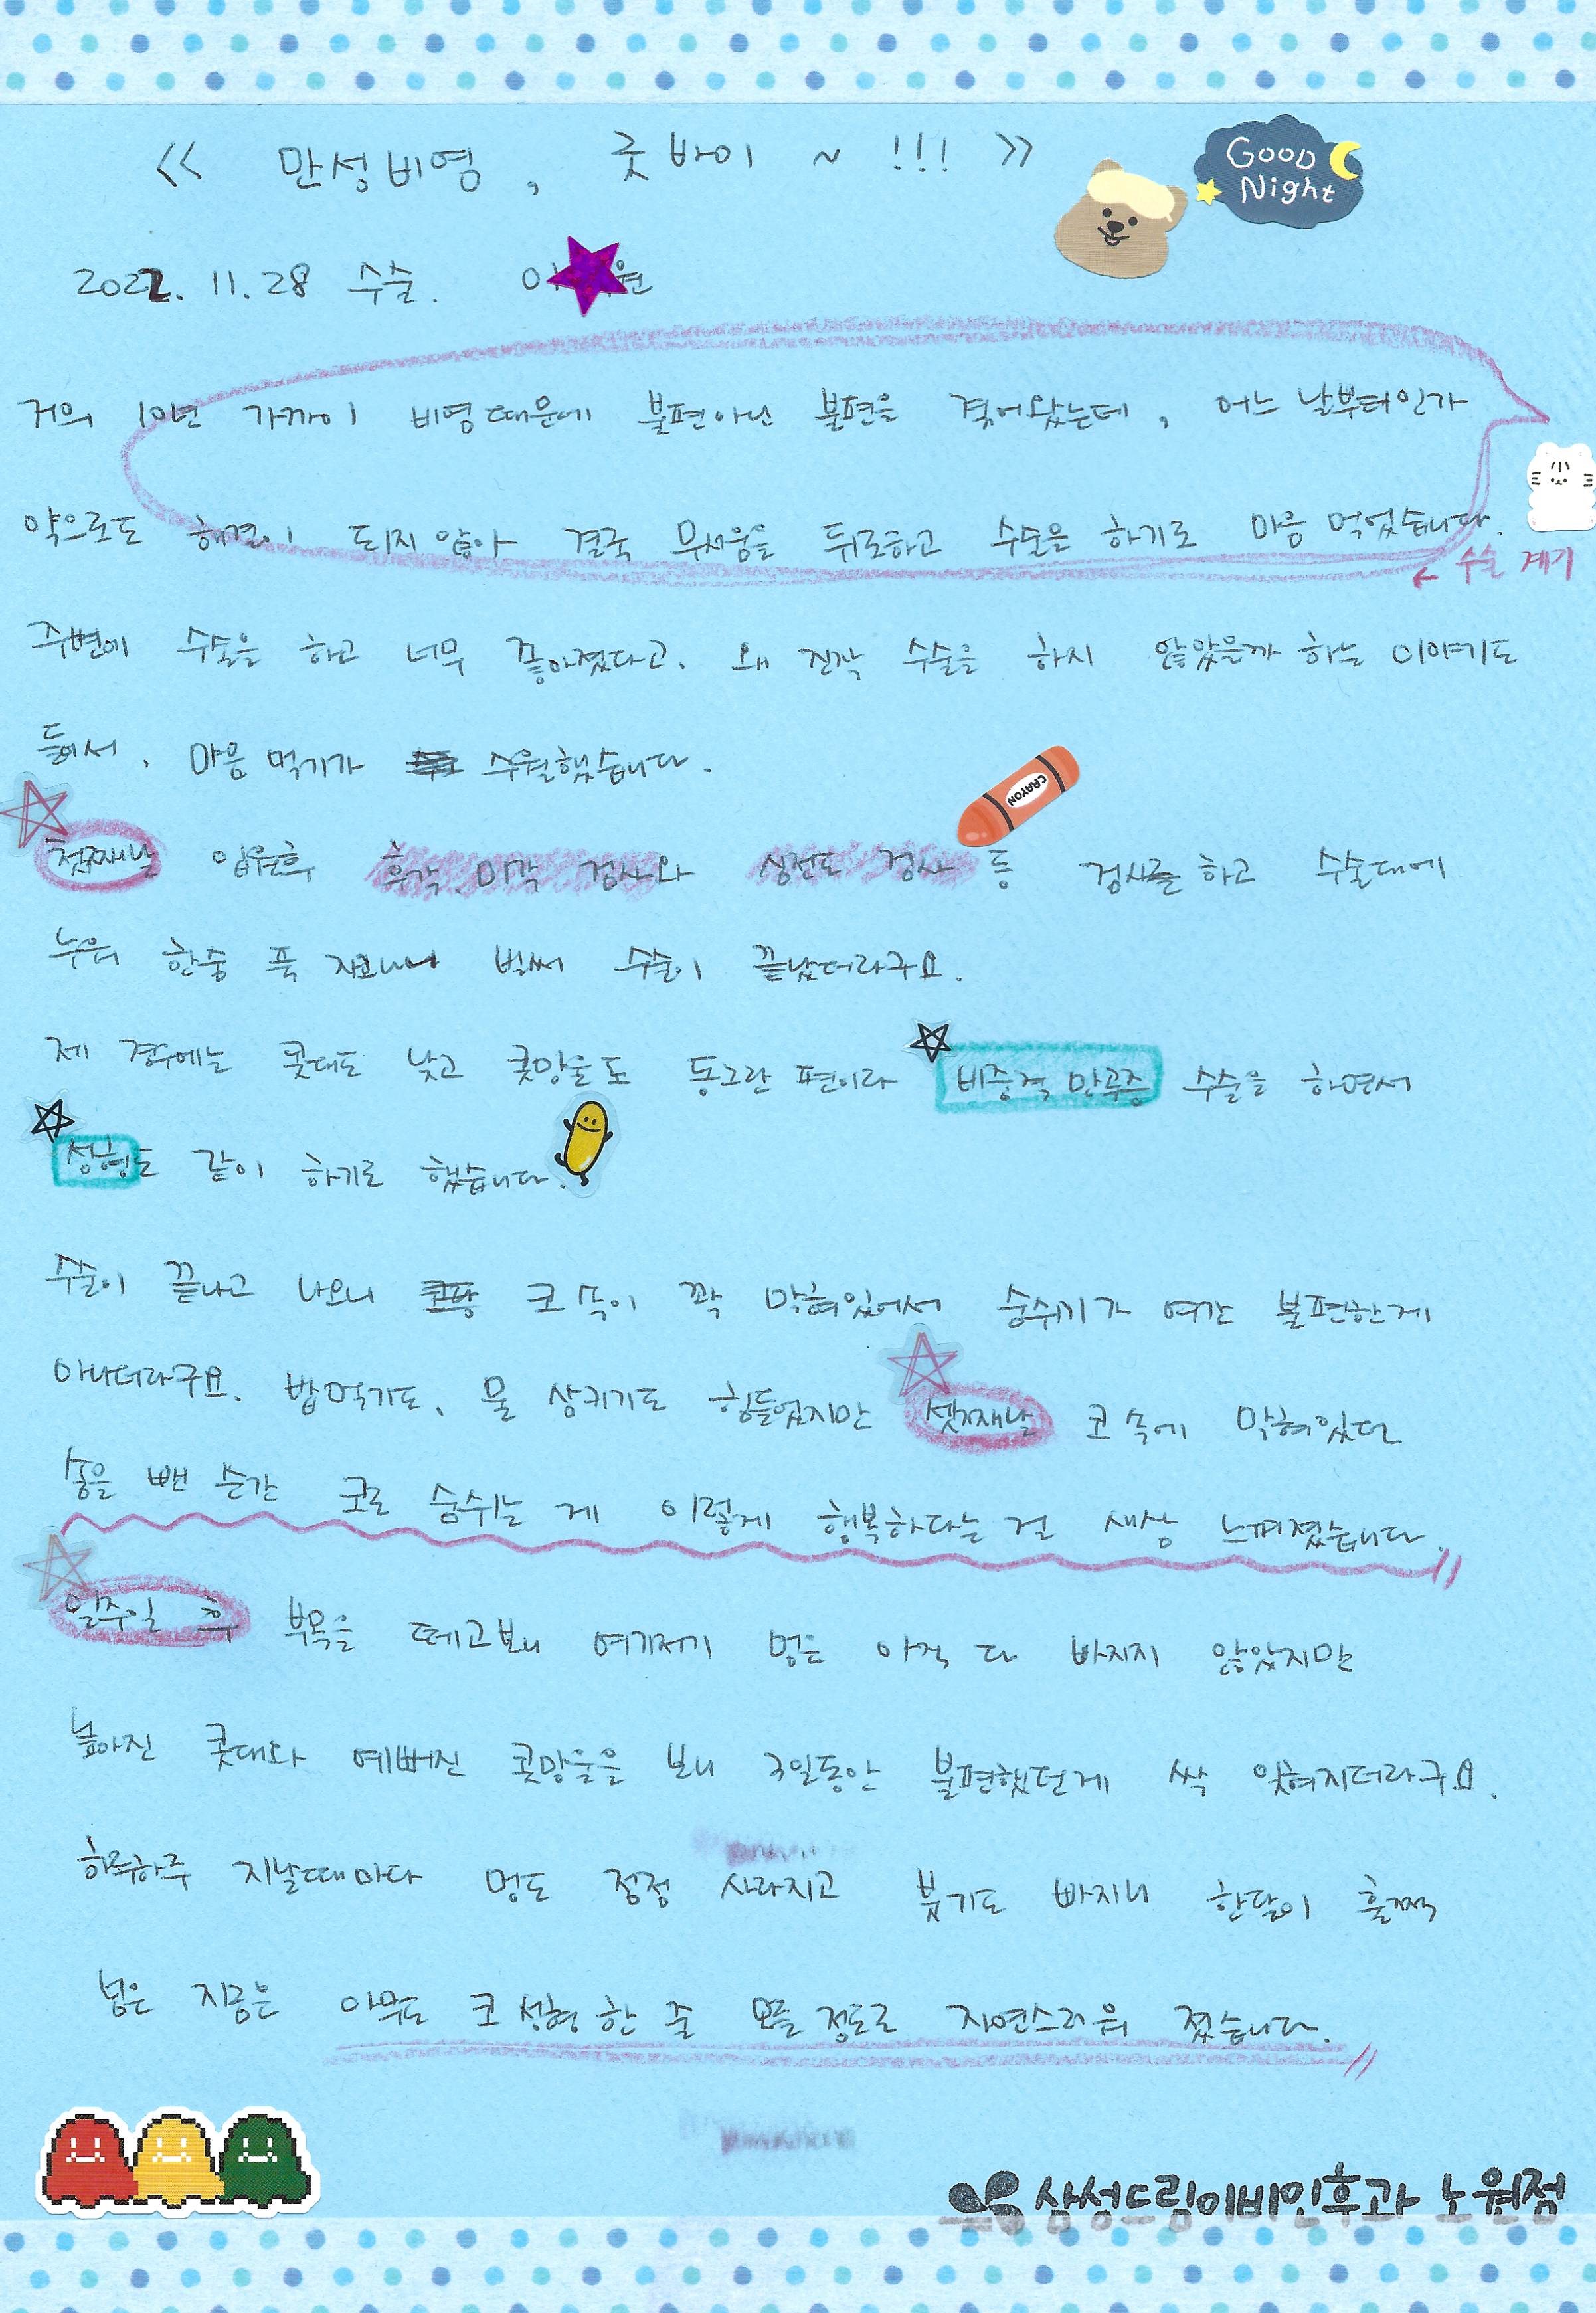 << 만성비염, 굿바이 ~ !!! >>
Good Night
2022. 11. 28 수술. 이 원
거의 10년 가까이 비염때문에 불편아닌 불편을 겪어왔는데, 어느 날부터인가
약으로도 해결이 되지 않아 결국 무서움을 뒤로하고 수술을 하기로 마음 먹었습니다.
← 수술 계기
주변에 수술을 하고 너무 좋아졌다고. 왜 진작 수술을 하지 않았을까 하는 이야기도
들어서, 마음 먹기가 수월했습니다.
CRAYON
첫째날 입원후 후각, 미각 검사와 심전도 검사 등 검사를 하고 수술대에
누워 한숨 푹 자고나니 벌써 수술이 끝났더라구요.
제 경우에는 콧대도 낮고 콧망울도 동그란 편이라 비중격 만곡증 수술을 하면서
성형도 같이 하기로 했습니다.
수술이 끝나고 나오니 코 속이 꽉 막혀있어서 숨쉬기가 여간 불편한게
아니더라구요. 밥먹기도, 물 삼키기도 힘들었지만 셋째날 코 속에 막혀있던
솜을 뺀 순간 코로 숨쉬는 게 이렇게 행복하다는 걸 새삼 느껴졌습니다.
일주일 후 부목을 떼고보니 여기저기 멍은 아직 다 빠지지 않았지만
높아진 콧대와 예뻐진 콧망울을 보니 3일동안 불편했던게 싹 잊혀지더라구요.
하루하루 지날때마다 멍도 점점 사라지고 붓기도 빠지니 한달이 훌쩍
넘은 지금은 아무도 코 성형 한 줄 모를 정도로 자연스러워 졌습니다.
삼성드림이비인후과 노원점